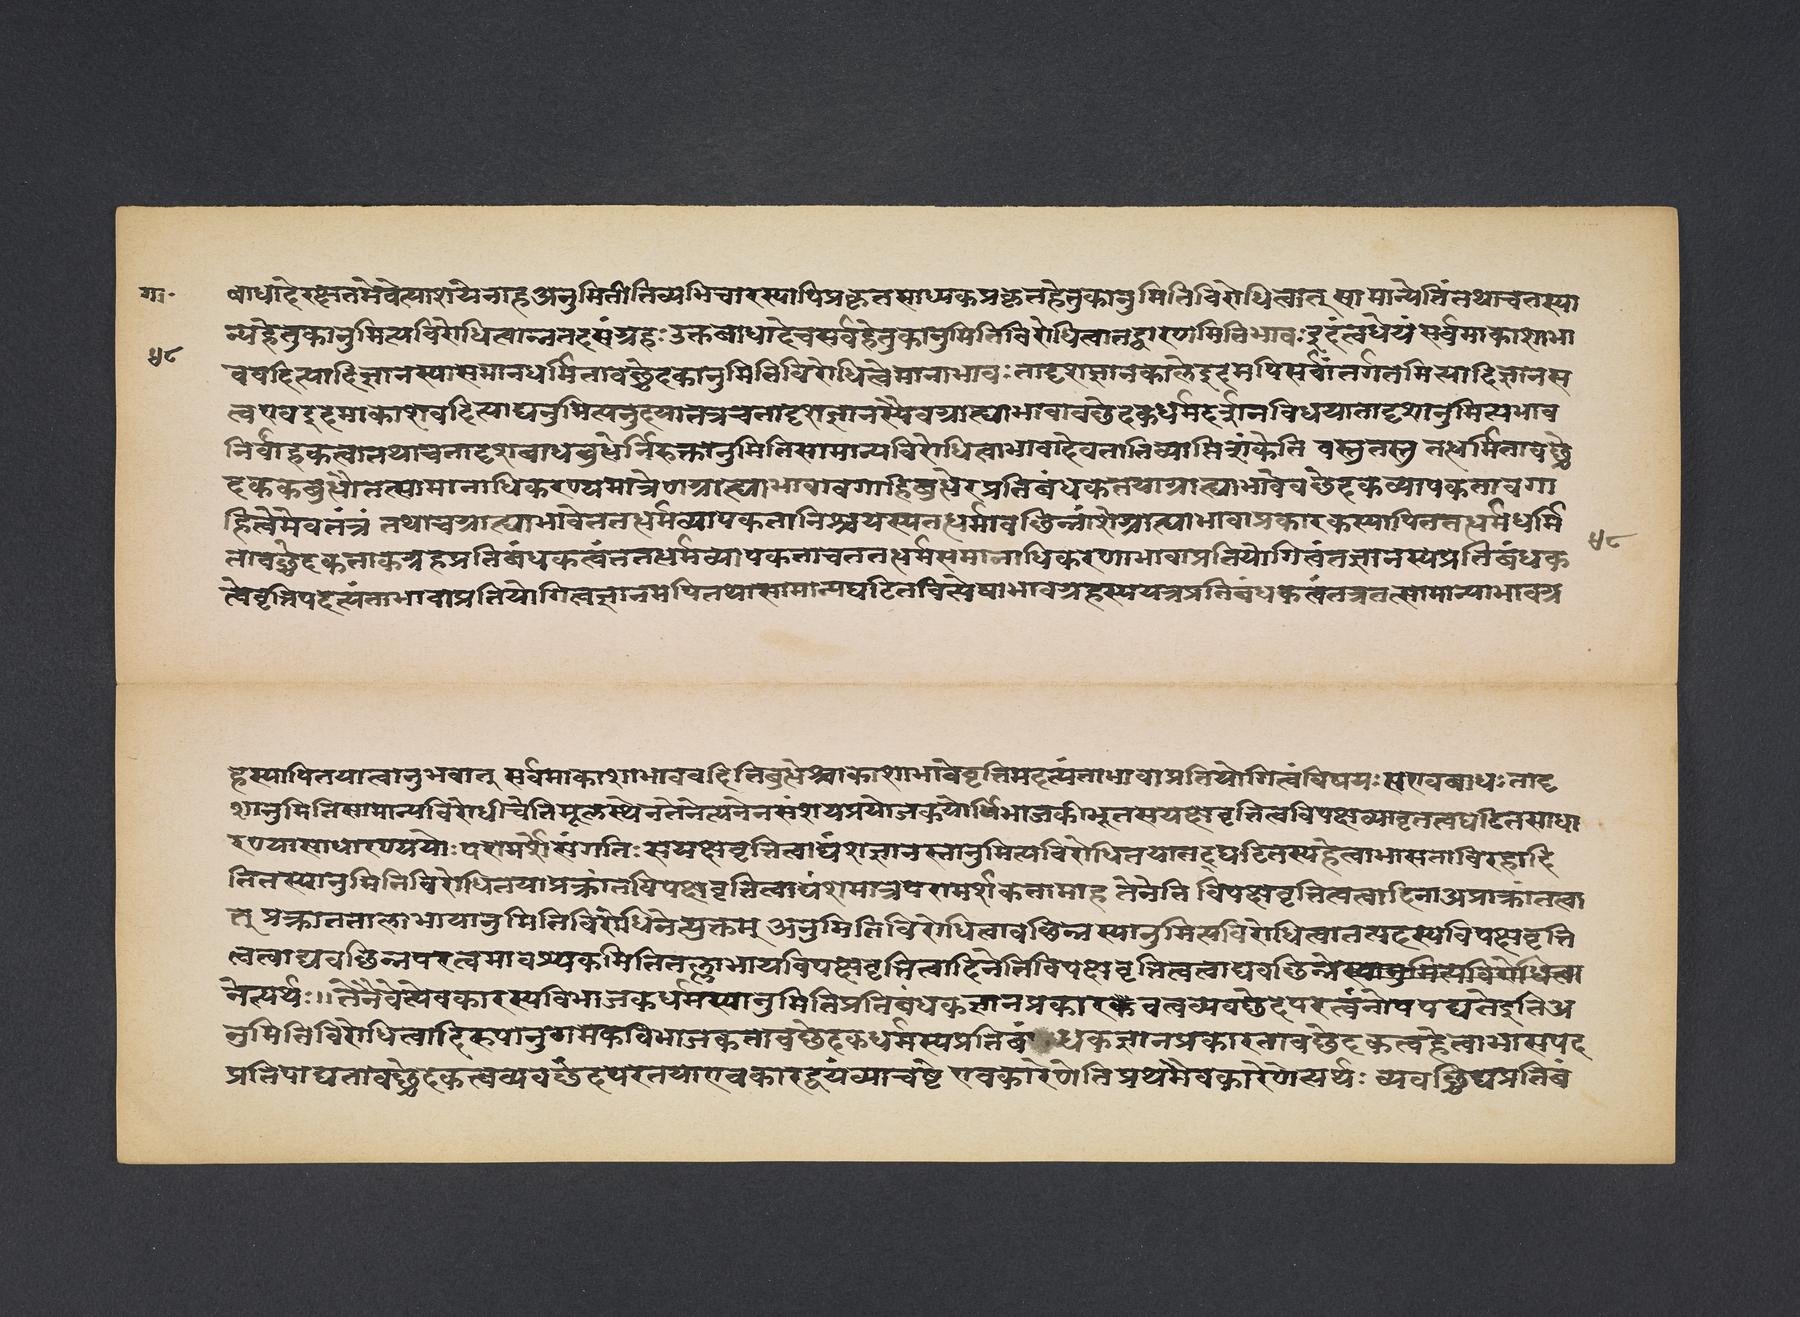 गा॰
५८
बाधादेरक्षतमेवेत्याशयेनाह अनुमितीतिव्यभिचारस्यापिप्रकृतसाध्यकप्रकृतहेतुकानुमितिविरोधित्वात् सामान्येतिंतथाचतस्या
न्यहेतुकानुमित्यविरोधित्वान्नतदसंग्रहः उक्तबाधादेश्चसर्वहेतुकानुमितिविरोधित्वात्तद्वारणमितिभावः इदंत्वधेयं सर्वमाकाशाभा
ववदित्यादिज्ञानस्यासमानधर्मितावच्छेदकानुमितिविरोधित्वेमानाभावः तादृशज्ञानकालेइदमपिसर्वांतर्गतमित्यादिज्ञानस
त्वएवइदमाकाशवदित्याद्यनुमित्यनुदयात्तत्रचतादृशज्ञानस्यैवग्राह्याभावावछेदकधर्मदर्शनविधयातादृशानुमित्यभाव
निर्वाहकत्वात्तथाचतादृशबाधबुधेर्निरुक्तानुमितिसामान्यविरोधित्वाभावादेवनातिव्याप्तिशंकेति वस्तुतस्तु तत्धर्मितावछे
दककबुधौतत्सामानाधिकरण्यमात्रेणग्राह्याभावावगाहिबुधेरप्रतिबंधकतयाग्राह्याभावेवछेदकव्यापकतावगा
हित्वेमेवतंत्रं तथाचग्राह्याभावेतत्धर्मव्यापकतानिश्चयस्यतत्धर्मावछिन्नांशेग्राह्याभावाप्रकारकस्यापितत्धर्मधर्मि
तावछेदकताकग्रहप्रतिबंधकत्वंतत्धर्मव्यापकताचतत्धर्मसमानाधिकरणाभावाप्रतियोगित्वंतज्ञानस्यप्रतिबंधक
त्वेवृत्तिमदत्यंताभावाप्रतियोगित्वज्ञानमपितथासामान्यघटितवित्शेषाभावग्रहस्ययत्रप्रतिबंधकत्वंतत्रतत्सामान्याभावग्र
५८
हस्यापितथात्वानुभवात् सर्वमाकाशाभाववदितिबुधेश्चाकाशाभावेवृत्तिमदत्यंताभावाप्रतियोगित्वंविषयः सएवबाधः तादृ
शानुमितिसामान्यविरोधीचेति मूलस्थेनतेनेत्यनेनसंशयप्रयोजकयोर्विभाजकीभूतसपक्षवृत्तित्वविपक्षव्यावृतत्वघटितसाधा
रण्यासाधारण्ययोः परामर्शेसंगतिः सपक्षवृत्तित्वाद्यंशज्ञानस्यानुमित्यविरोधितयातद्घटितस्यहेत्वाभासताविरहादि
तितस्यानुमितिविरोधितयाप्रक्रांतविपक्षवृत्तित्वाद्यंशमात्रपरामर्शकतामाह तेनेति विपक्षवृत्तित्वत्वादिनाअप्राक्रांतत्वा
त् प्रक्रांततालाभायानुमितिविरोधिनेत्युक्तम् अनुमितिविरोधित्वावछिन्नस्यानुमित्यविरोधित्वात्तत्पदस्यविपक्षवृत्ति
त्वत्वाद्यवछिन्नपरत्वमावश्यकमितितल्लाभायविपक्षवृत्तित्वादिनेतिविपक्षवृत्तित्वत्वाद्यवछिन्नेस्यानुमित्यविरोधित्वा
नेत्यर्थः ।। तेनैवेत्येवकारस्यविभाजकधर्मस्यानुमितिप्रतिबंधकज्ञानप्रकारकैवत्वव्यवछेदपरत्वंनोपपद्यतेइतिअ
नुमितिविरोधित्वादिरूपानुगमकविभाजकतावछेदकधर्मस्यप्रतिबंधकज्ञानप्रकारतावछेदकत्वहेत्वाभासपद
प्रतिपाद्यतावछेदकत्वव्यवछेदपरतयाएवकारद्वयंव्याचष्टे एवकारेणेति प्रथमैवकारेणेत्यर्थः व्यवछिद्यप्रतिबं